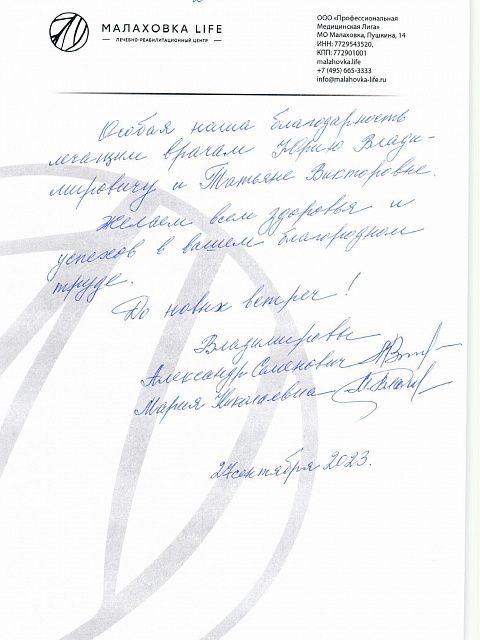 МАЛАХОВКА LIFE
ЛЕЧЕБНО-РЕАБИЛИТАЦИОННЫЙ ЦЕНТР
ООО «Профессиональная
Медицинская Лига»
МО Малаховка, Пушкина, 14
ИНН: 7729543520,
КПП: 772901001
malahovka.life
+7 (495) 665-3333
info@malahovka-life.ru
Особая наша благодарность
лечащим врачам Юрию Влади-
мировичу и Татьяне Викторовне.
Желаем всем здоровья и
успехов в вашем благородном
труде.
До новых встреч!
Владимировы
Александр Семёнович
Мария Николаевна
27 сентября 2023.